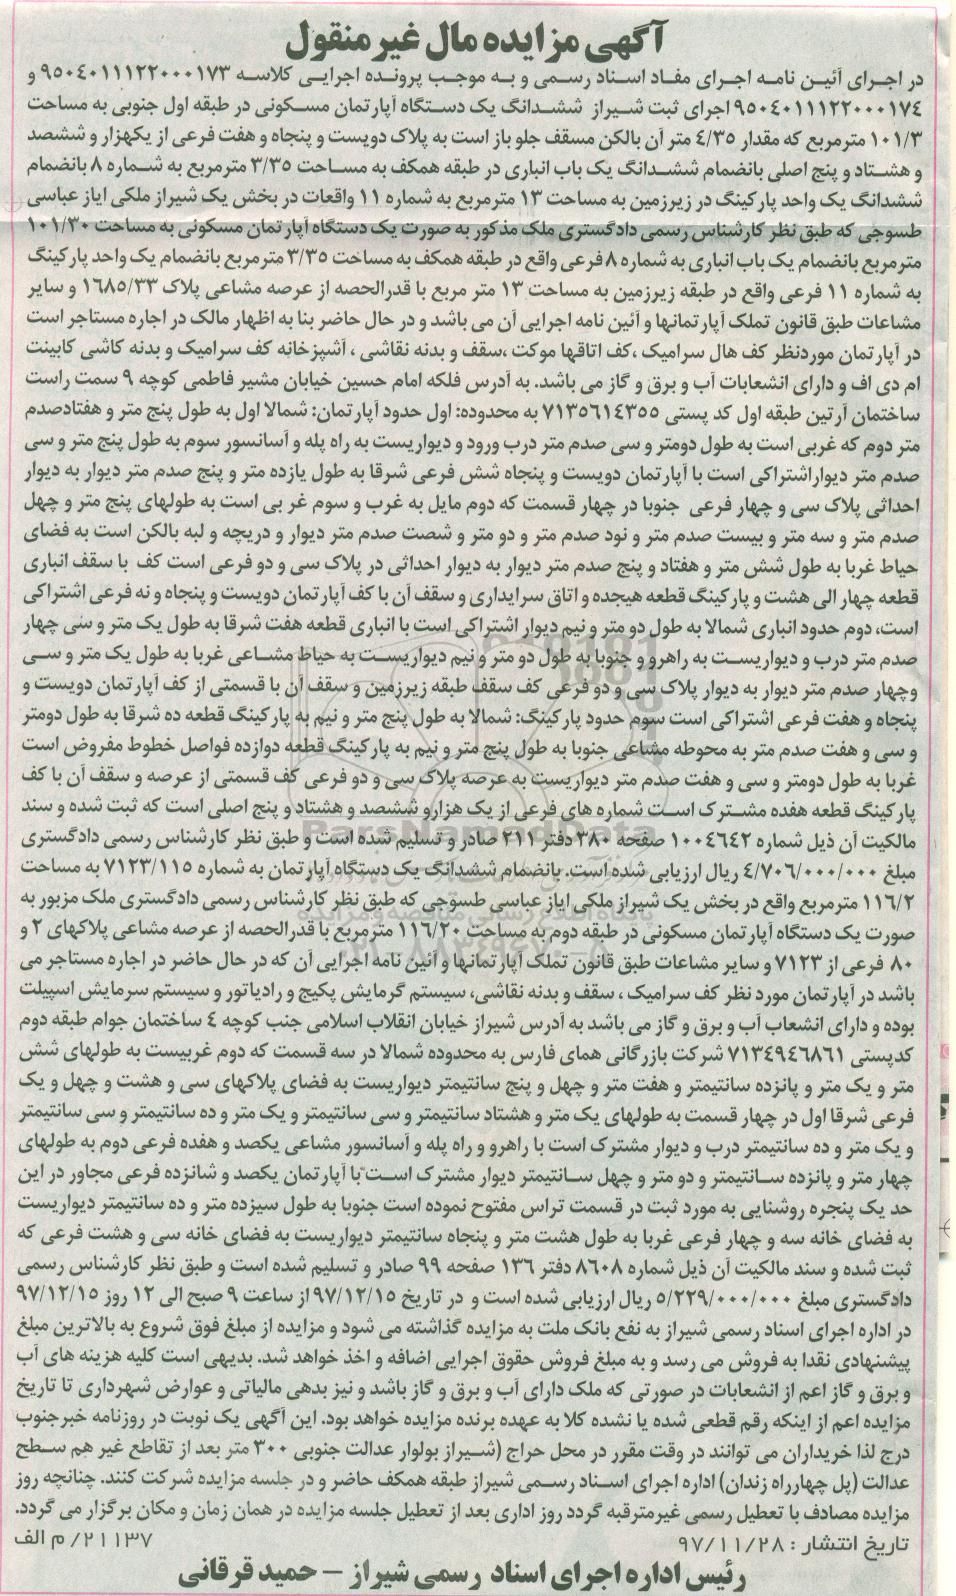 آگهی مزایده مال غیر منقول
در اجرای آئین نامه اجرای مفاد اسناد رسمی و به موجب پرونده اجرایی کلاسه ۹۵۰۴۰۱۱۱۲۲۰۰۰۱۷۳ و
۹۵۰۴۰۱۱۱۲۲۰۰۰۱۷۴ اجرای ثبت شیراز ششدانگ یک دستگاه آپارتمان مسکونی در طبقه اول جنوبی به مساحت
۱۰۱/۳ مترمربع که مقدار ۴/۳۵ متر آن بالکن مسقف جلو باز است به پلاک دویست و پنجاه و هفت فرعی از یکهزار و ششصد
و هشتاد و پنج اصلی بانضمام ششدانگ یک باب انباری در طبقه همکف به مساحت ۳/۳۵ مترمربع به شماره ۸ بانضمام
ششدانگ یک واحد پارکینگ در زیرزمین به مساحت ۱۳ مترمربع به شماره ۱۱ واقعات در بخش یک شیراز ملکی ایاز عباسی
طسوجی که طبق نظر کارشناس رسمی دادگستری ملک مذکور به صورت یک دستگاه آپارتمان مسکونی به مساحت ۱۰۱/۳۰
مترمربع بانضمام یک باب انباری به شماره ۸ فرعی واقع در طبقه همکف به مساحت ۳/۳۵ مترمربع بانضمام یک واحد پارکینگ
به شماره ۱۱ فرعی واقع در طبقه زیرزمین به مساحت ۱۳ متر مربع با قدرالحصه از عرصه مشاعی پلاک ۱۶۸۵/۳۳ و سایر
مشاعات طبق قانون تملک آپارتمانها و آئین نامه اجرایی آن می باشد و در حال حاضر بنا به اظهار مالک در اجاره مستاجر است
در آپارتمان موردنظر کف هال سرامیک ،کف اتاقها موکت ،سقف و بدنه نقاشی ، آشپزخانه کف سرامیک و بدنه کاشی کابینت
ام دی اف و دارای انشعابات آب و برق و گاز می باشد. به آدرس فلکه امام حسین خیابان مشیر فاطمی کوچه ۹ سمت راست
ساختمان آرتین طبقه اول کد پستی ۷۱۳۵۶۱۴۳۵۵ به محدوده: اول حدود آپارتمان: شمالا اول به طول پنج متر و هفتادصدم
متر دوم که غربی است به طول دومتر و سی صدم متر درب ورود و دیواریست به راه پله و آسانسور سوم به طول پنج متر و سی
صدم متر دیواراشتراکی است با آپارتمان دویست و پنجاه شش فرعی شرقا به طول یازده متر و پنج صدم متر دیوار به دیوار
احداثی پلاک سی و چهار فرعی جنوبا در چهار قسمت که دوم مایل به غرب و سوم غربی است به طولهای پنج متر و چهل
صدم متر و سه متر و بیست صدم متر و نود صدم متر و دو متر و شصت صدم متر دیوار و دریچه و لبه بالکن است به فضای
حیاط غربا به طول شش متر و هفتاد و پنج صدم متر دیوار به دیوار احداثی در پلاک سی و دو فرعی است کف با سقف انباری
قطعه چهار الی هشت و پارکینگ قطعه هیجده و اتاق سرایداری و سقف آن با کف آپارتمان دویست و پنجاه و نه فرعی اشتراکی
است، دوم حدود انباری شمالا به طول دو متر و نیم دیوار اشتراکی است با انباری قطعه هفت شرقا به طول یک متر و سی چهار
صدم متر درب و دیواریست به راهرو و جنوبا به طول دو متر و نیم دیواریست به حیاط مشاعی غربا به طول یک متر و سی
وچهار صدم متر دیوار به دیوار پلاک سی و دو فرعی کف سقف طبقه زیرزمین و سقف آن با قسمتی از کف آپارتمان دویست و
پنجاه و هفت فرعی اشتراکی است سوم حدود پارکینگ: شمالا به طول پنج متر و نیم به پارکینگ قطعه ده شرقا به طول دومتر
و سی و هفت صدم متر به محوطه مشاعی جنوبا به طول پنج متر و نیم به پارکینگ قطعه دوازده فواصل خطوط مفروض است
غربا به طول دومتر و سی و هفت صدم متر دیواریست به عرصه پلاک سی و دو فرعی کف قسمتی از عرصه و سقف آن با کف
پارکینگ قطعه هفده مشترک است شماره های فرعی از یک هزارو ششصد و هشتاد و پنج اصلی است که ثبت شده و سند
مالکیت آن ذیل شماره ۱۰۰۴۶۴۲ صفحه ۳۸۰ دفتر ۲۱۱ صادر و تسلیم شده است و طبق نظر کارشناس رسمی دادگستری
مبلغ ۴/۷۰۶/۰۰۰/۰۰۰ ریال ارزیابی شده است. بانضمام ششدانگ یک دستگاه آپارتمان به شماره ۷۱۲۳/۱۱۵ به مساحت
۱۱۶/۲ مترمربع واقع در بخش یک شیراز ملکی ایاز عباسی طسوجی که طبق نظر کارشناس رسمی دادگستری ملک مزبور به
صورت یک دستگاه آپارتمان مسکونی در طبقه دوم به مساحت ۱۱۶/۲۰ مترمربع با قدرالحصه از عرصه مشاعی پلاکهای ۲ و
۸۰ فرعی از ۷۱۲۳ و سایر مشاعات طبق قانون تملک آپارتمانها و آئین نامه اجرایی آن که در حال حاضر در اجاره مستاجر می
باشد در آپارتمان مورد نظر کف سرامیک ، سقف و بدنه نقاشی، سیستم گرمایش پکیج و رادیاتور و سیستم سرمایش اسپیلت
بوده و دارای انشعاب آب و برق و گاز می باشد به آدرس شیراز خیابان انقلاب اسلامی جنب کوچه ۴ ساختمان جوام طبقه دوم
کدپستی ۷۱۳۴۹۴۶۸۶۱ شرکت بازرگانی همای فارس به محدوده شمالا در سه قسمت که دوم غربیست به طولهای شش
متر و یک متر و پانزده سانتیمتر و هفت متر و چهل و پنج سانتیمتر دیواریست به فضای پلاکهای سی و هشت و چهل و یک
فرعی شرقا اول در چهار قسمت به طولهای یک متر و هشتاد سانتیمتر و سی سانتیمتر و یک متر و ده سانتیمتر و سی سانتیمتر
و یک متر و ده سانتیمتر درب و دیوار مشترک است با راهرو و راه پله و آسانسور مشاعی یکصد و هفده فرعی دوم به طولهای
چهار متر و پانزده سانتیمتر و دو متر و چهل سانتیمتر دیوار مشترک است با آپارتمان یکصد و شانزده فرعی مجاور در این
حد یک پنجره روشنایی به مورد ثبت در قسمت تراس مفتوح نموده است جنوبا به طول سیزده متر و ده سانتیمتر دیواریست
به فضای خانه سه و چهار فرعی غربا به طول هشت متر و پنجاه سانتیمتر دیواریست به فضای خانه سی و هشت فرعی که
ثبت شده و سند مالکیت آن ذیل شماره ۸۶۰۸ دفتر ۱۳۶ صفحه ۹۹ صادر و تسلیم شده است و طبق نظر کارشناس رسمی
دادگستری مبلغ ۵/۲۲۹/۰۰۰/۰۰۰ ریال ارزیابی شده است و در تاریخ ۹۷/۱۲/۱۵ از ساعت ۹ صبح الی ۱۲ روز ۹۷/۱۲/۱۵
در اداره اجرای اسناد رسمی شیراز به نفع بانک ملت به مزایده گذاشته می شود و مزایده از مبلغ فوق شروع به بالاترین مبلغ
پیشنهادی نقدا به فروش می رسد و به مبلغ فروش حقوق اجرایی اضافه و اخذ خواهد شد. بدیهی است کلیه هزینه های آب
و برق و گاز اعم از انشعابات در صورتی که ملک دارای آب و برق و گاز باشد و نیز بدهی مالیاتی و عوارض شهرداری تا تاریخ
مزایده اعم از اینکه رقم قطعی شده یا نشده کلا به عهده برنده مزایده خواهد بود. این آگهی یک نوبت در روزنامه خبرجنوب
درج لذا خریداران می توانند در وقت مقرر در محل حراج (شیراز بولوار عدالت جنوبی ۳۰۰ متر بعد از تقاطع غیر هم سطح
عدالت (پل چهارراه زندان) اداره اجرای اسناد رسمی شیراز طبقه همکف حاضر و در جلسه مزایده شرکت کنند. چنانچه روز
مزایده مصادف با تعطیل رسمی غیرمترقبه گردد روز اداری بعد از تعطیل جلسه مزایده در همان زمان و مکان برگزار می گردد.
تاریخ انتشار : ۹۷/۱۱/۲۸
۲۱۱۳۷/ م الف
رئیس اداره اجرای اسناد رسمی شیراز – حمید قرقانی